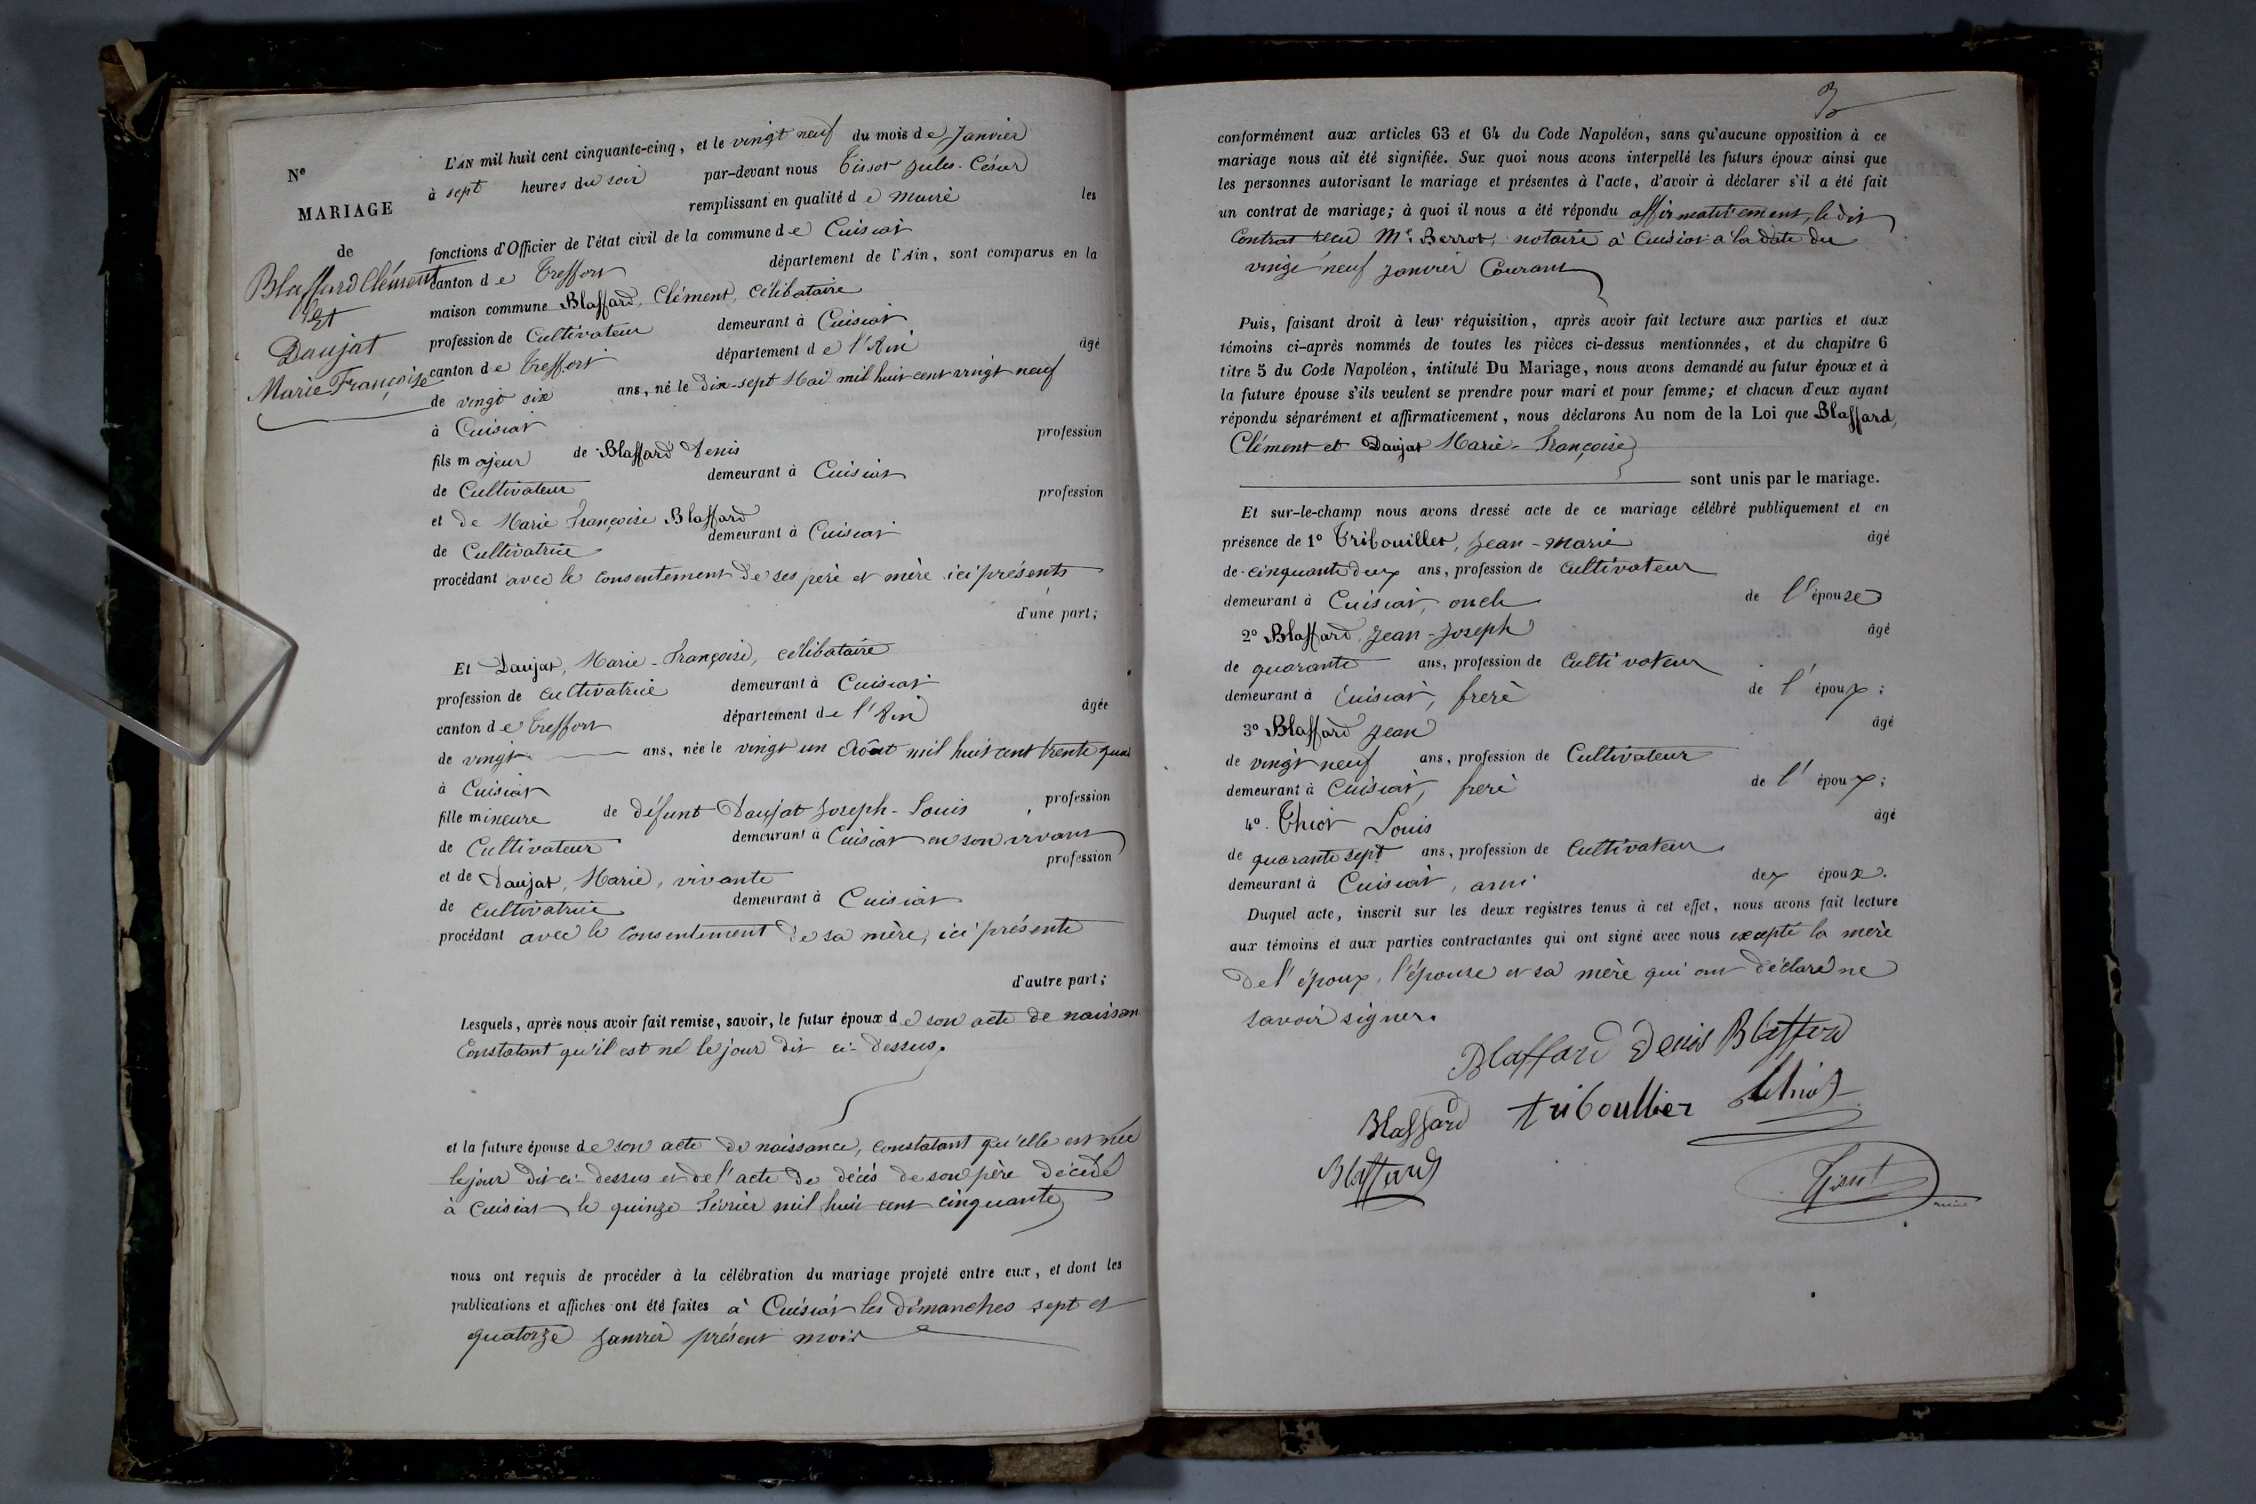 Nº
MARIAGE
de
Blaffard Clément
Et
Daujat
Marie Françoise
L'AN mil huit cent cinquante-cinq, et le vingt neuf du mois de Janvier
à sept heures du soir par-devant nous Tissot Jules-César
remplissant en qualité de Maire les
fonctions d'Officier de l'état civil de la commune de Cuisiat
canton de Treffort département de l'Ain, sont comparus en la
maison commune Blaffard, Clément, Célibataire
profession de Cultivateur demeurant à Cuisiat
canton de Treffort département de l'Ain âgé
de vingt six ans, né le dix-sept Mai mil huit cent vingt neuf
à Cuisiat
fils majeur de Blaffard Denis profession
de Cultivateur demeurant à Cuisiat
et de Marie Françoise Blaffard profession
de Cultivatrice demeurant à Cuisiat
procédant avec le consentement de ses père et mère ici présents
d'une part;
Et Daujat, Marie-Françoise, célibataire
profession de cultivatrice demeurant à Cuisiat
canton de Treffort département de l'Ain âgée
de vingt ans, née le vingt un Août mil huit cent trente quat
à Cuisiat
fille mineure de défunt Daujat Joseph-Louis profession
de Cultivateur demeurant à Cuisiat en son vivant
et de Daujat, Marie, vivante profession
de cultivatrice demeurant à Cuisiat
procédant avec le consentement de sa mère, ici présente
d'autre part;
Lesquels, après nous avoir fait remise, savoir, le futur époux de son acte de naissan
Constatant qu'il est né le jour dit ci-dessus.
et la future épouse de son acte de naissance, constatant qu'elle est née
le jour dit ci-dessus et de l'acte de décès de son père décédé
à Cuisiat le quinze Février mil huit cent cinquante
nous ont requis de procéder à la célébration du mariage projeté entre eux, et dont les
publications et affiches ont été faites à Cuisiat les dimanches sept et
quatorze Janvier présent mois
3
conformément aux articles 63 et 64 du Code Napoléon, sans qu'aucune opposition à ce
mariage nous ait été signifiée. Sur quoi nous avons interpellé les futurs époux ainsi que
les personnes autorisant le mariage et présentes à l'acte, d'avoir à déclarer s'il a été fait
un contrat de mariage; à quoi il nous a été répondu affirmativement, le dit
Contrat recu Me. Berrot, notaire à Cuisiat à la date du
vingt neuf Janvier Courant
Puis, faisant droit à leur réquisition, après avoir fait lecture aux parties et aux
témoins ci-après nommés de toutes les pièces ci-dessus mentionnées, et du chapitre 6
titre 5 du Code Napoléon, intitulé Du Mariage, nous avons demandé au futur époux et à
la future épouse s'ils veulent se prendre pour mari et pour femme; et chacun d'eux ayant
répondu séparément et affirmativement, nous déclarons Au nom de la Loi que Blaffard,
Clément et Daujat Marie-Françoise
sont unis par le mariage.
Et sur-le-champ nous avons dressé acte de ce mariage célébré publiquement et en
présence de 1º Tribouillet, Jean-Marie âgé
de cinquante deux ans, profession de Cultivateur
demeurant à Cuisiat, oncle de l'épouse
2º Blaffard, Jean-Joseph âgé
de quarante ans, profession de Cultivateur
demeurant à Cuisiat, frère de l'époux;
3º Blaffard Jean âgé
de vingt neuf ans, profession de Cultivateur
demeurant à Cuisiat, frère de l'époux;
4º. Thiot Louis âgé
de quarante sept ans, profession de Cultivateur
demeurant à Cuisiat, ami des époux.
Duquel acte, inscrit sur les deux registres tenus à cet effet, nous avons fait lecture
aux témoins et aux parties contractantes qui ont signé avec nous excepté la mère
De l'époux, l'épouse et sa mère qui ont déclaré ne
savoir signer.
Blaffard Denis Blaffard
Blaffard triboullier Lthiot
Blaffard Tissot
maire